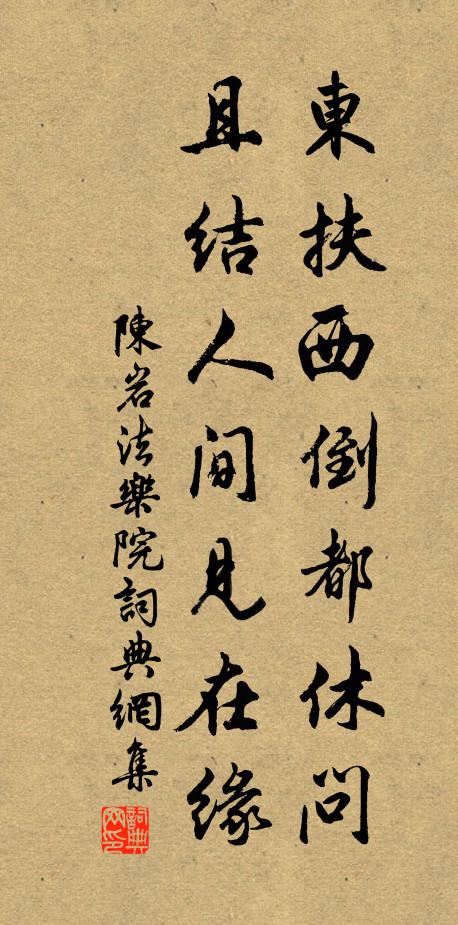 東扶西倒都休問
且結人間見在緣
陳岩法樂院詞典網集
詞典网印